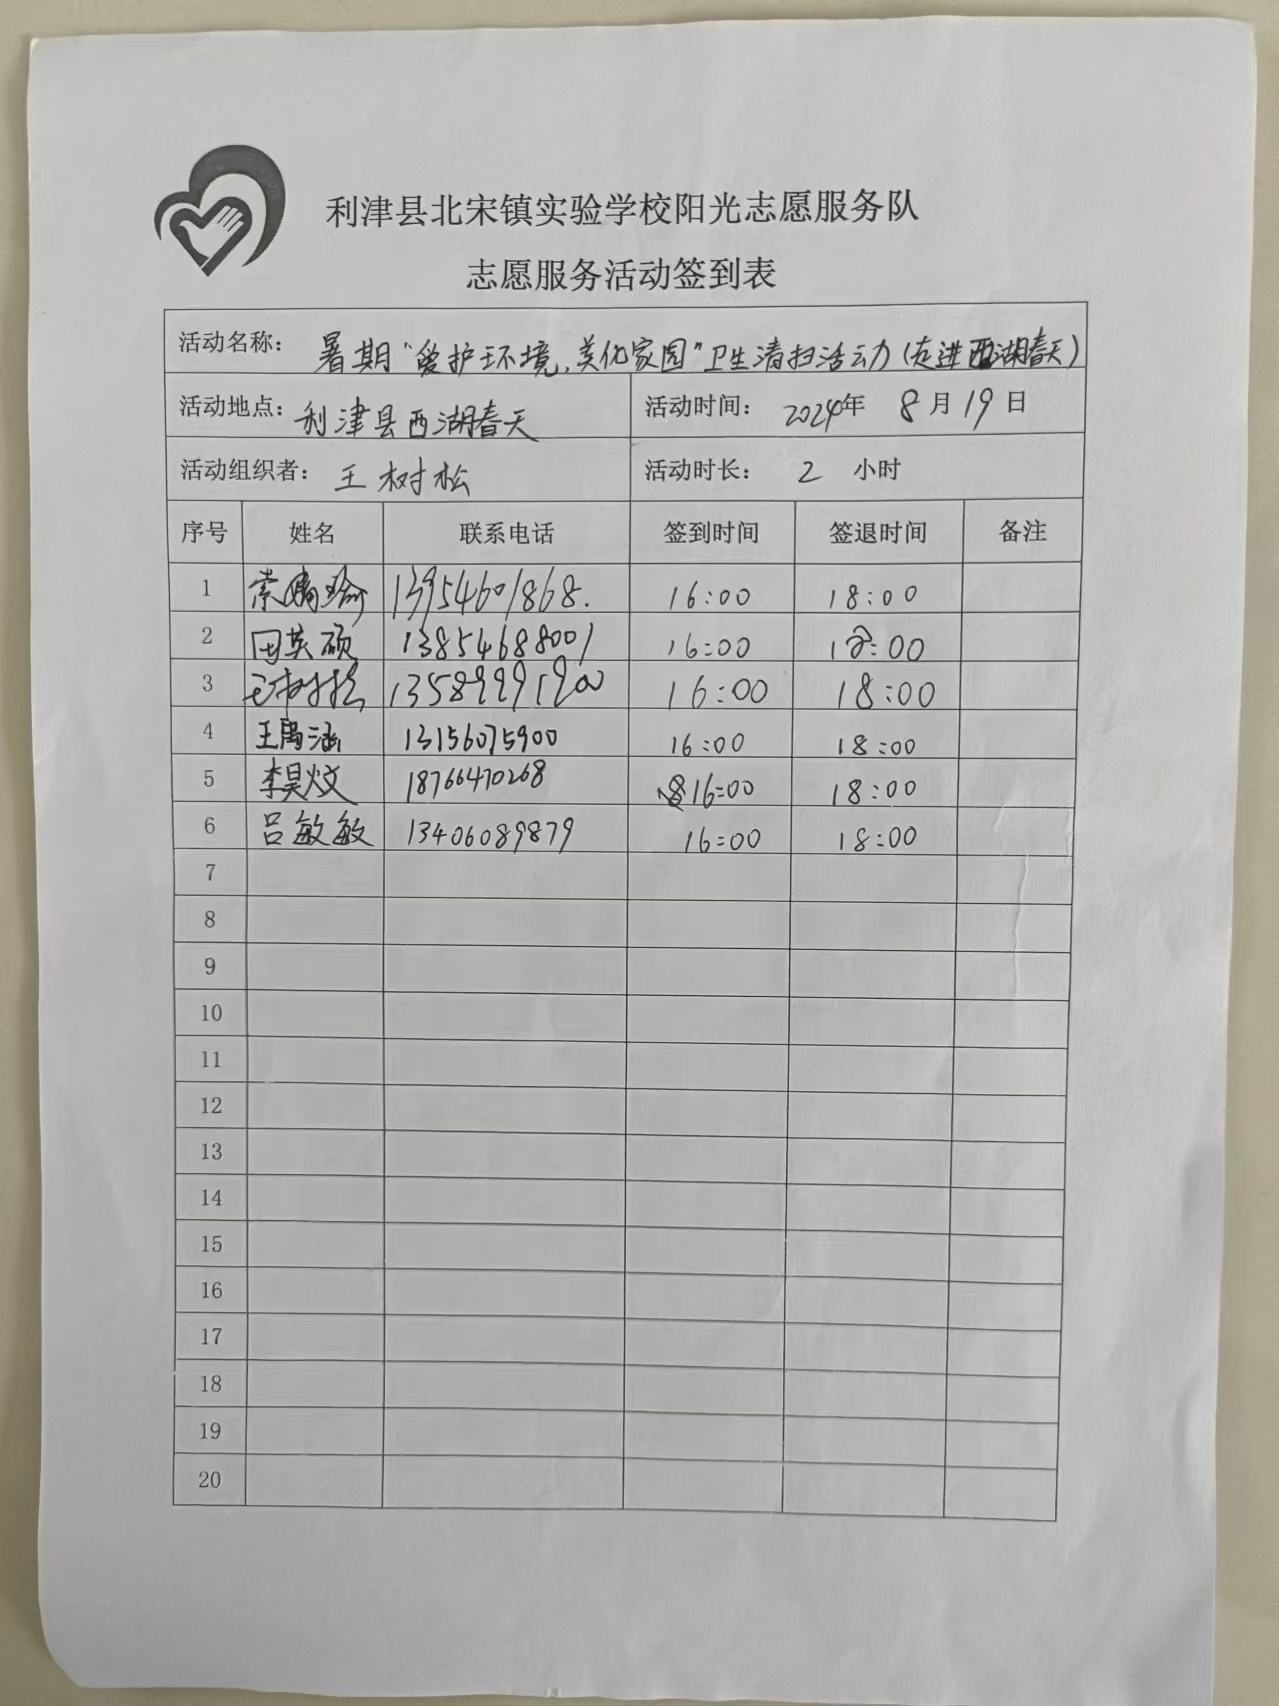 利津县北宋镇实验学校阳光志愿服务队
志愿服务活动签到表
活动名称： 暑期“爱护环境，美化家园”卫生清扫活动（走进西湖春天）
活动地点： 利津县西湖春天 活动时间： 2024年 8月19日
活动组织者： 王树松 活动时长： 2 小时
序号 姓名 联系电话 签到时间 签退时间 备注
1 13954601868. 16:00 18:00
2 田英硕 13854688001 16:00 18:00
3 王树松 13589991900 16:00 18:00
4 王禹涵 13156075900 16:00 18:00
5 李昊炆 18766470268 16:00 18:00
6 吕敏敏 13406089879 16:00 18:00
7
8
9
10
11
12
13
14
15
16
17
18
19
20